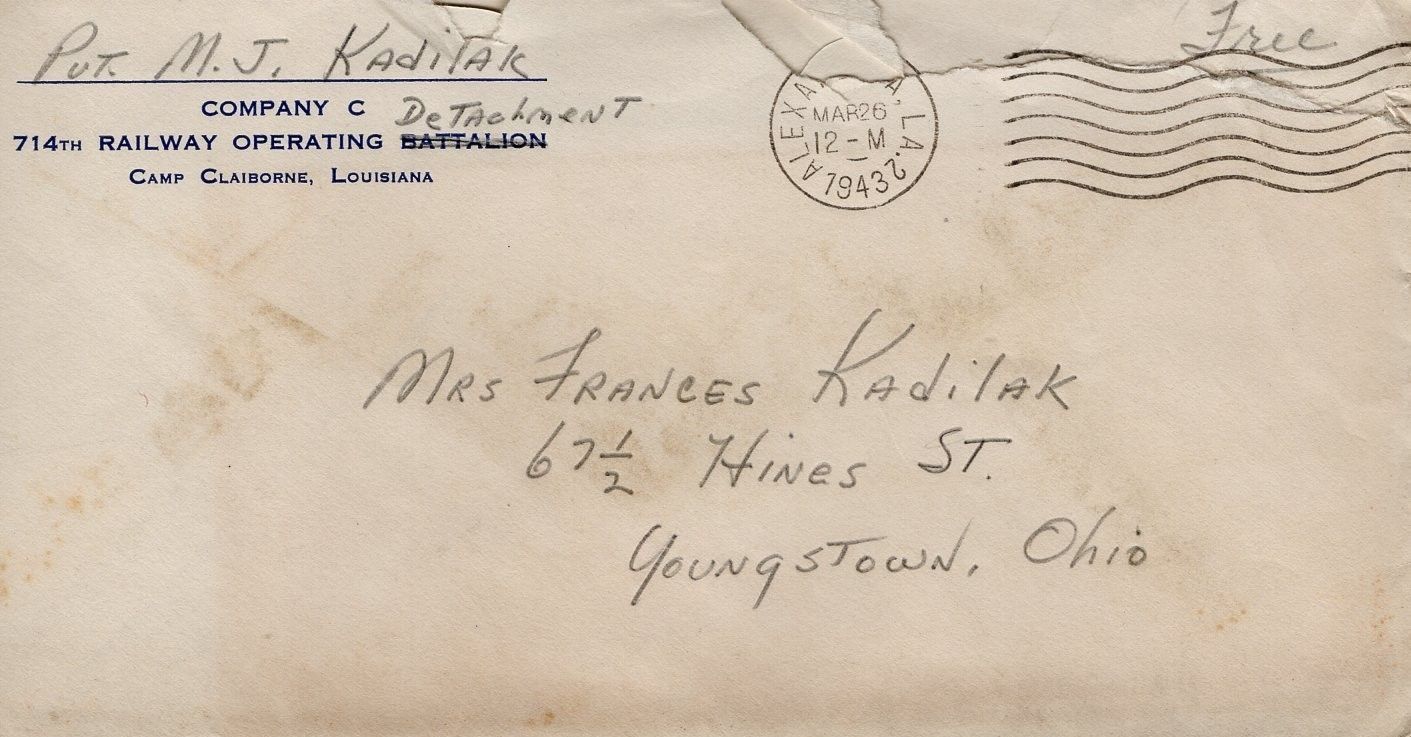 Pvt. M. J. Kadilak
Free
COMPANY C
Detachment
714TH RAILWAY OPERATING BATTALION
CAMP CLAIBORNE, LOUISIANA
LA. 2
MAR 26
12 - M
1943
Mrs Frances Kadilak
67 1/2 Hines St.
Youngstown, Ohio